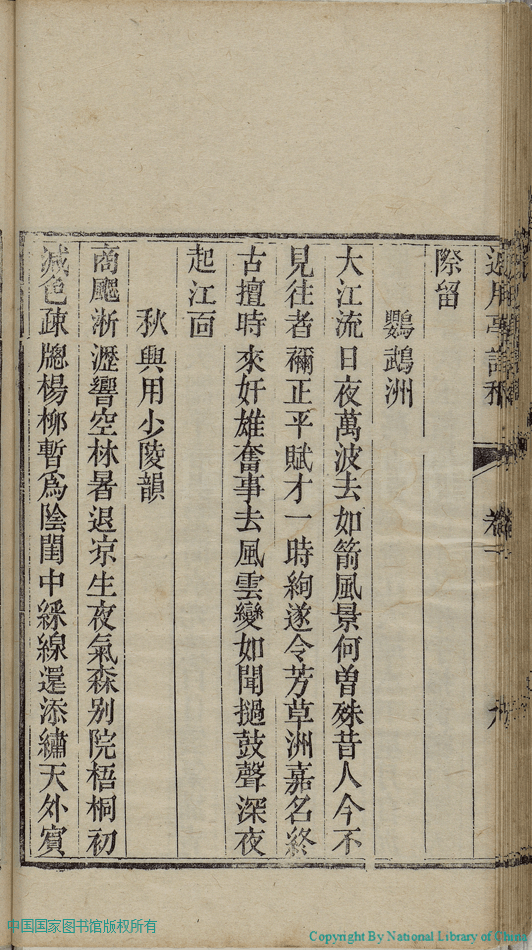 際留
鸚鵡洲
大江流日夜萬波去如箭風景何曾殊昔人今不
見往者禰正平賦才一時絢遂令芳草洲嘉名終
古擅時來奸雄奮事去風雲變如聞撾鼓聲深夜
起江面
秋興用少陵韻
商颷淅瀝響空林暑退凉生夜氣森别院梧桐初
減色疎牕楊柳暫爲陰閨中綵線還添繡天外賓
中国国家图书馆版权所有
Copyright By National Library of China